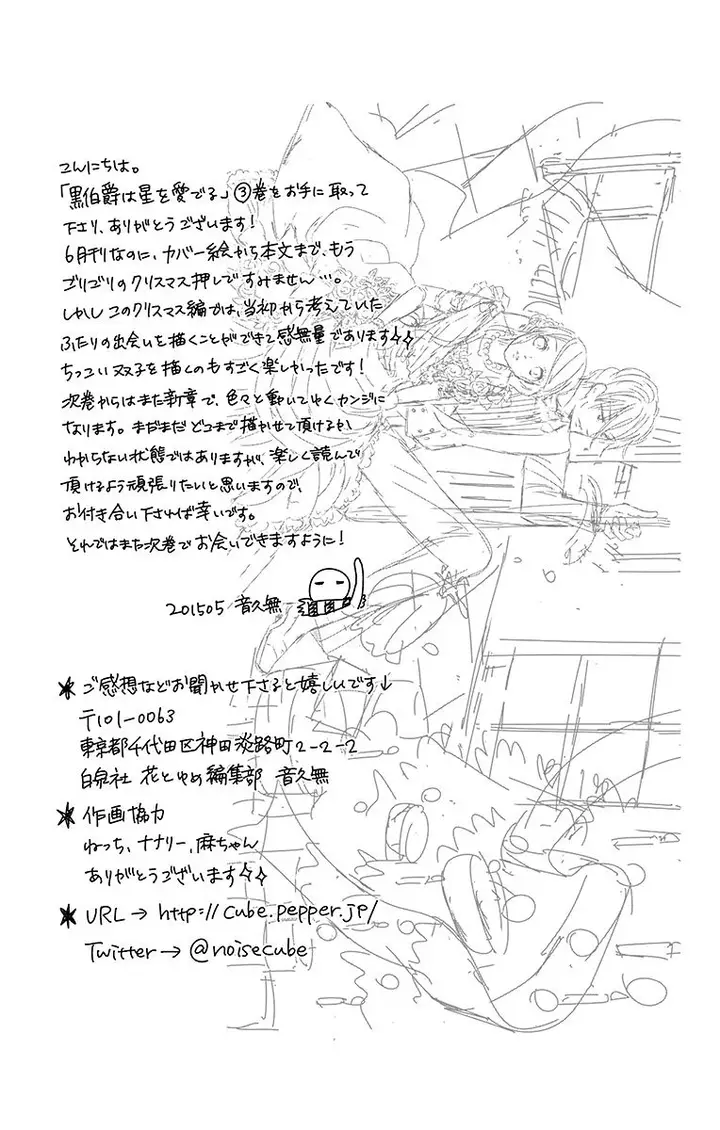 こんにちは。
「黒伯爵は星を愛でる」③巻をお手に取って
下さり、ありがとうございます!
6月刊なのに、カバー絵から本文まで、もう
ゴリゴリのクリスマス押しですみません…。
しかしこのクリスマス編では、当初から考えていた
ふたりの出会いを描くことができて感無量であります☆☆
ちっこい双子を描くのもすごく楽しかったです!
次巻からはまた新章で、色々と動いてゆくカンジに
なります。まだまだどこまで描かせて頂けるか
わからない状態ではありますが、楽しく読んで
頂けるよう頑張りたいと思いますので、
お付き合い下されば幸いです。
それではまた次巻でお会いできますように!
201505 音久無
* ご感想などお聞かせ下さると嬉しいです↓
〒101-0063
東京都千代田区神田淡路町2-2-2
白泉社 花とゆめ編集部 音久無
* 作画協力
ねっち、ナナリー、麻ちゃん
ありがとうございます☆☆
* URL→ http://cube.pepper.jp/
Twitter→ @noisecube